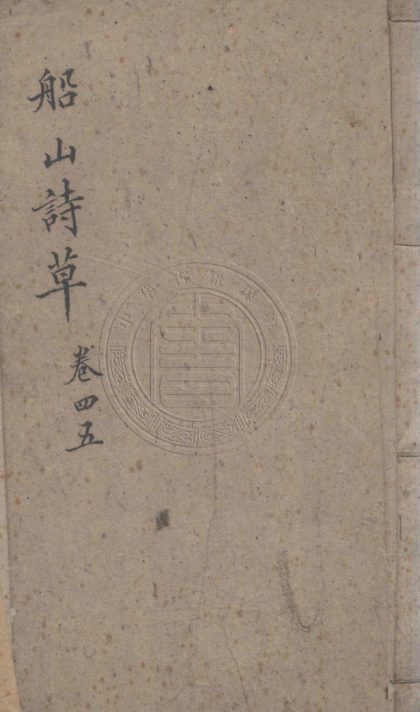 船山詩草
卷四五